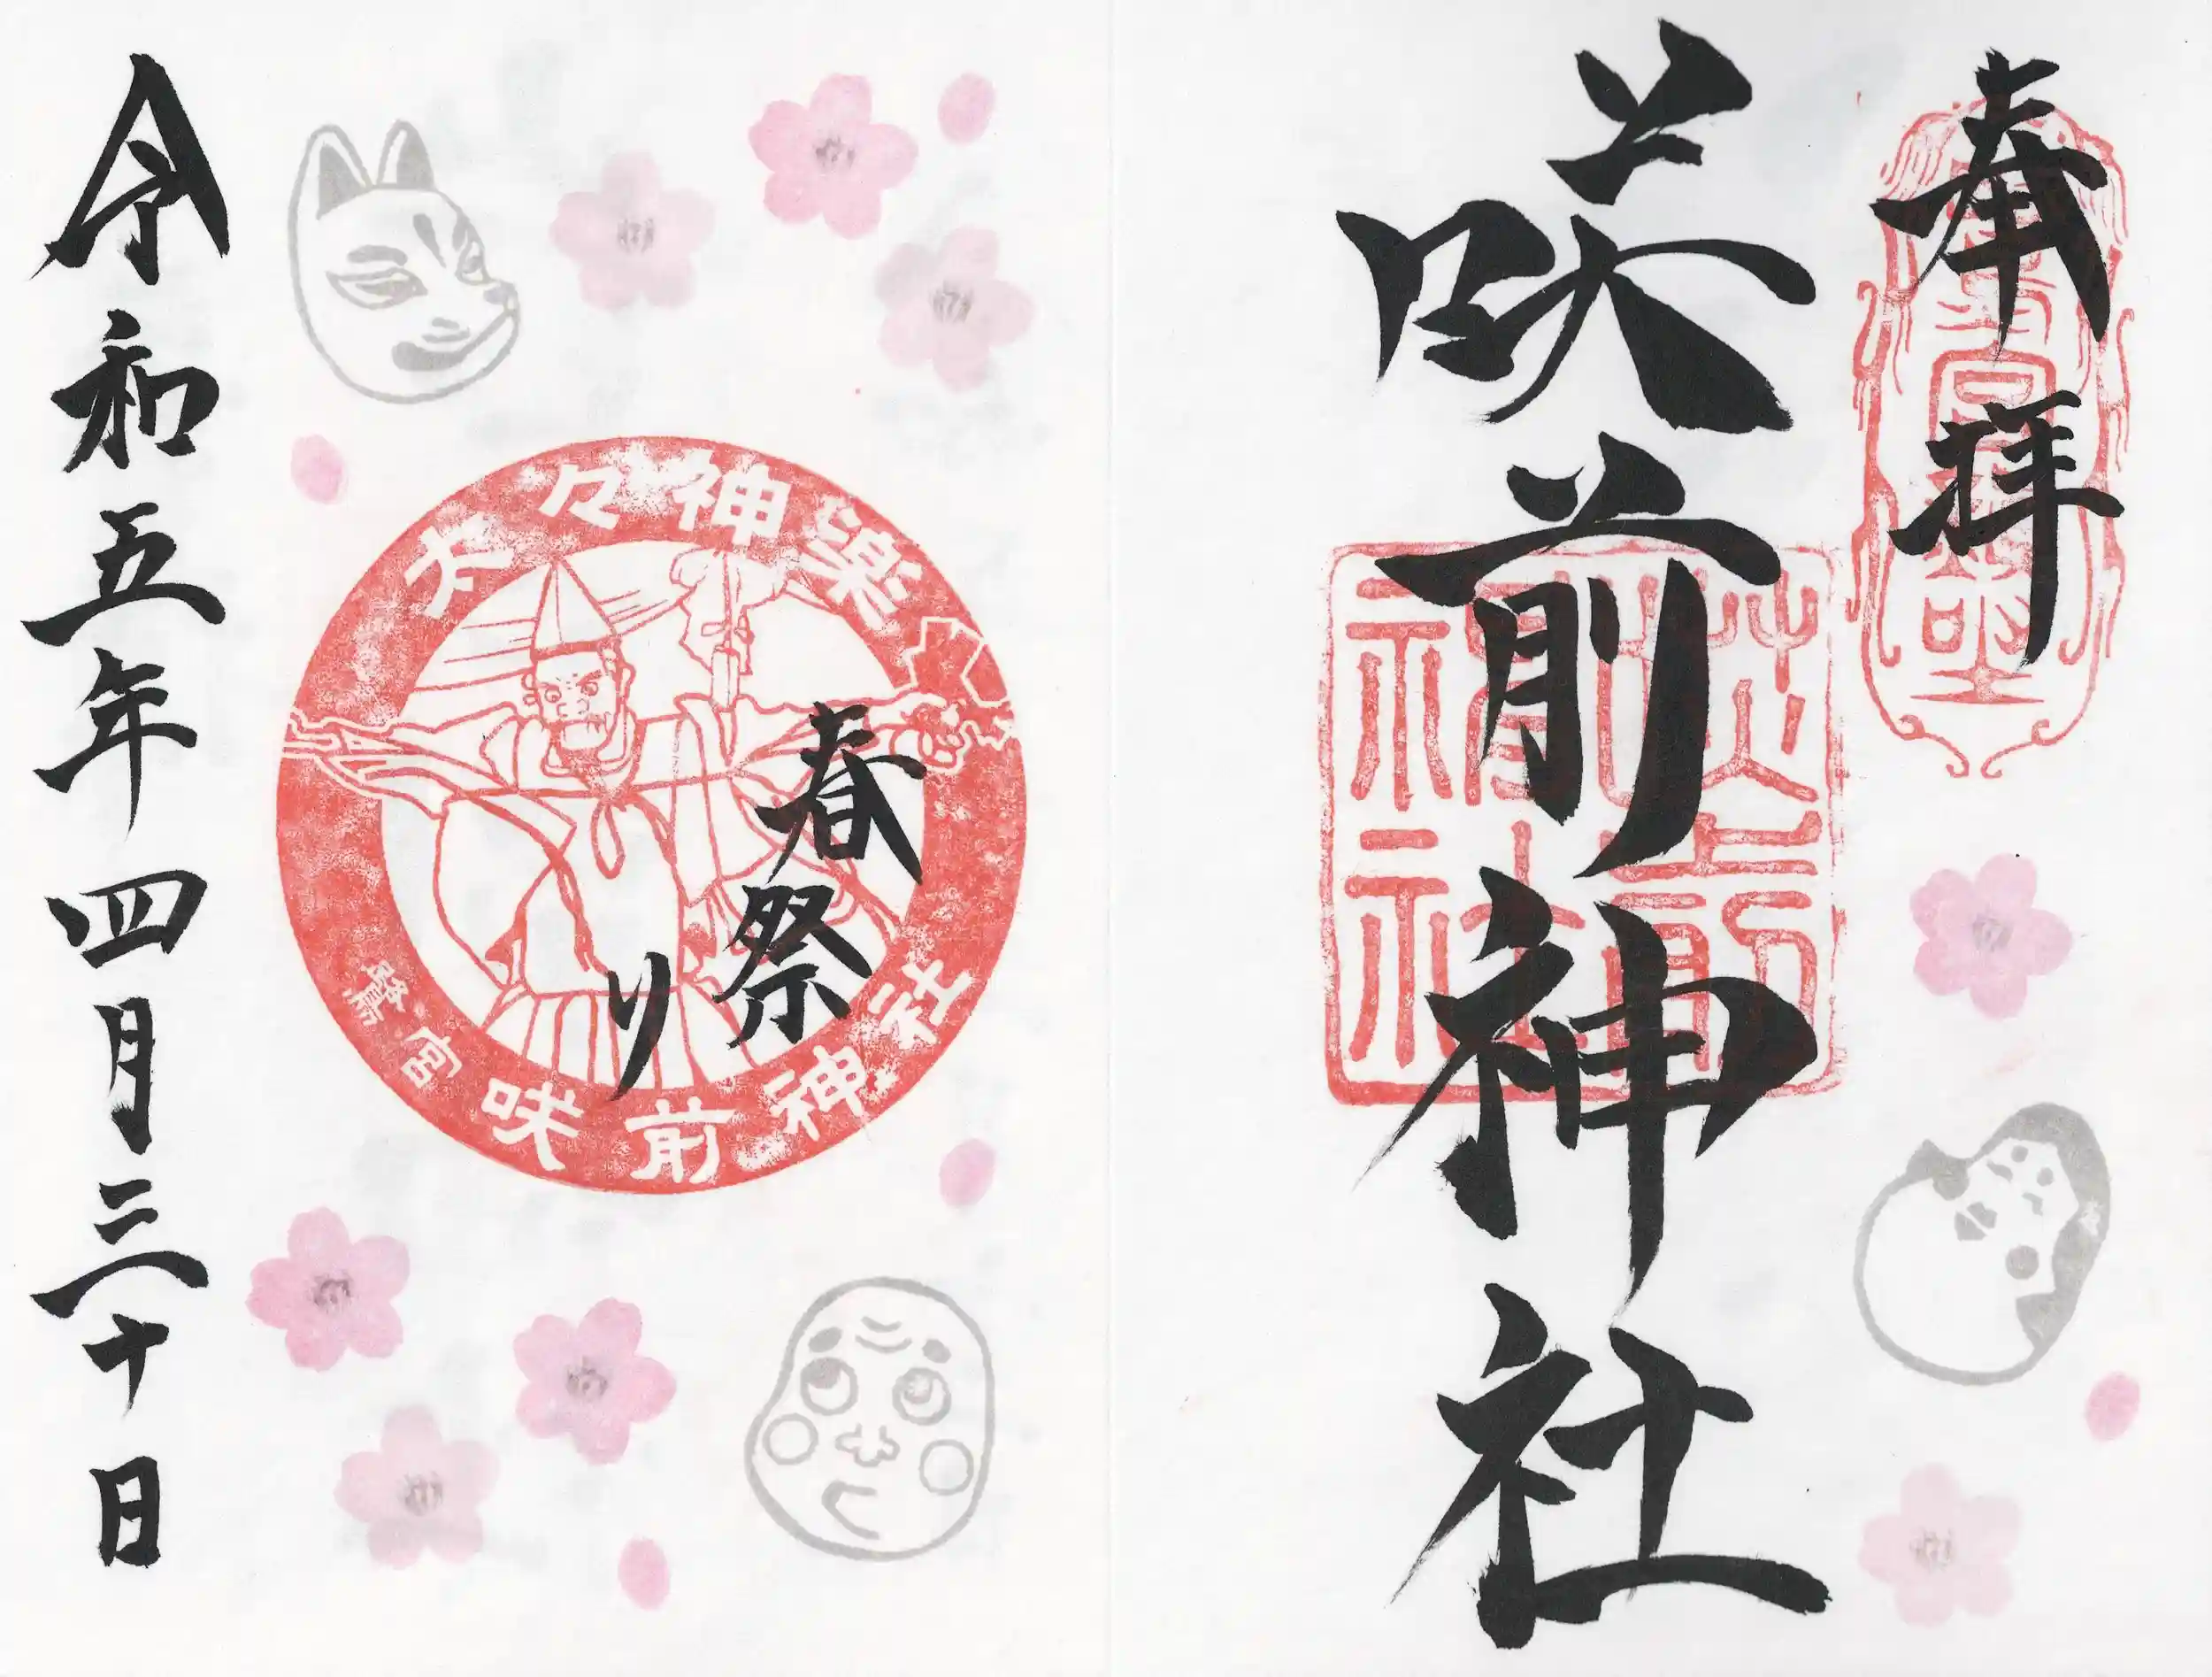 奉拝
咲前神社
咲前神社
太々神楽
鷺宮咲前神社
春祭り
令和五年四月三十日